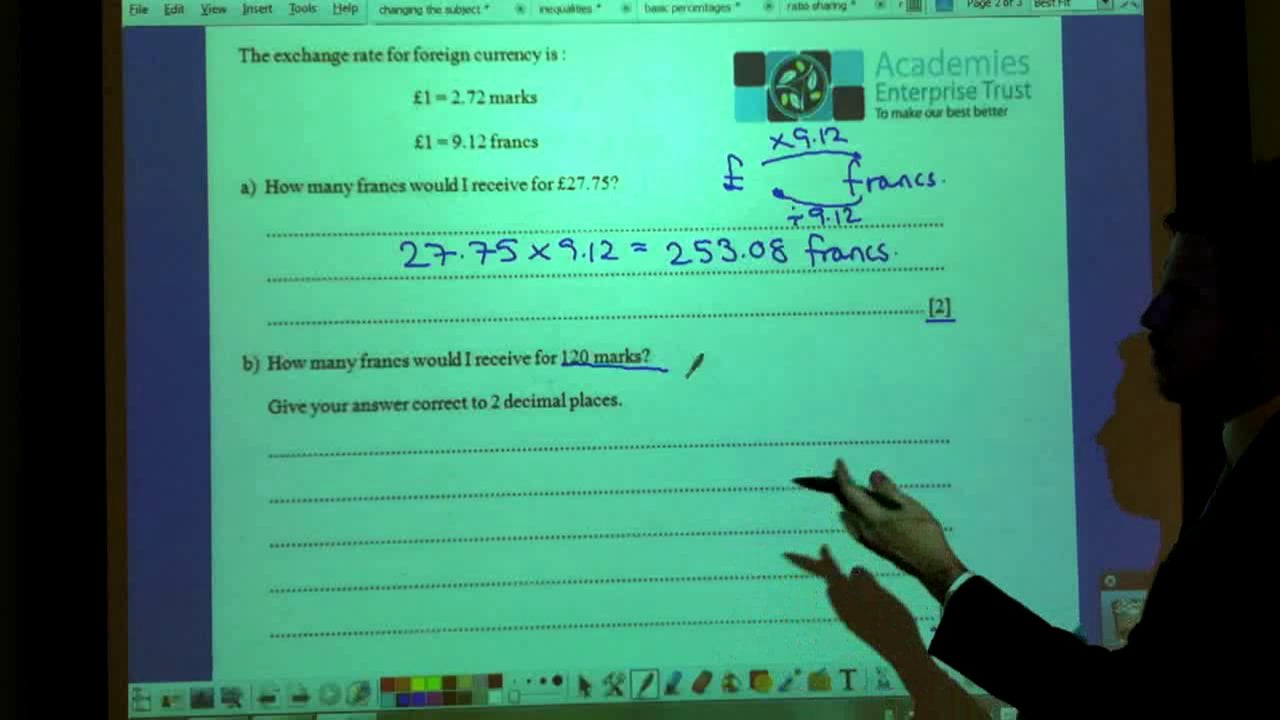 File Edit View Insert Tools Help changing the subject * inequalities * basic percentages * ratio sharing * Page 2 of 3 Best Fit
The exchange rate for foreign currency is :
Academies
Enterprise Trust
To make our best better
£1 = 2.72 marks
£1 = 9.12 francs
×9.12
£ francs.
÷9.12
a) How many francs would I receive for £27.75?
27.75 × 9.12 = 253.08 francs.
[2]
b) How many francs would I receive for 120 marks?
Give your answer correct to 2 decimal places.
T